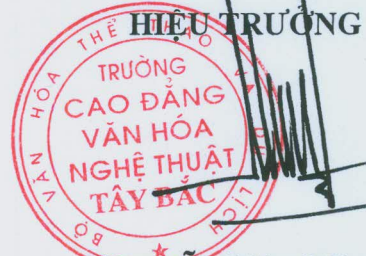 HIỆU TRƯỞNG
BỘ VĂN HÓA THỂ THAO VÀ DU LỊCH
TRƯỜNG
CAO ĐẲNG
VĂN HÓA
NGHỆ THUẬT
TÂY BẮC